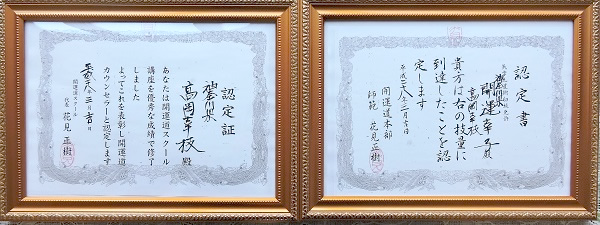 認定証
高岡幸枝 殿
あなたは開運道スクール
講座を優秀な成績で修了
しました
よってこれを表彰し開運道
カウンセラーと認定します
平成二十八年三月吉日
開運道スクール
代表 花見正樹
認定書
開運幸子殿
高岡幸枝
貴方は右の技量に
到達したことを認
定します
平成二十八年三月吉日
開運道本部
師範 花見正樹